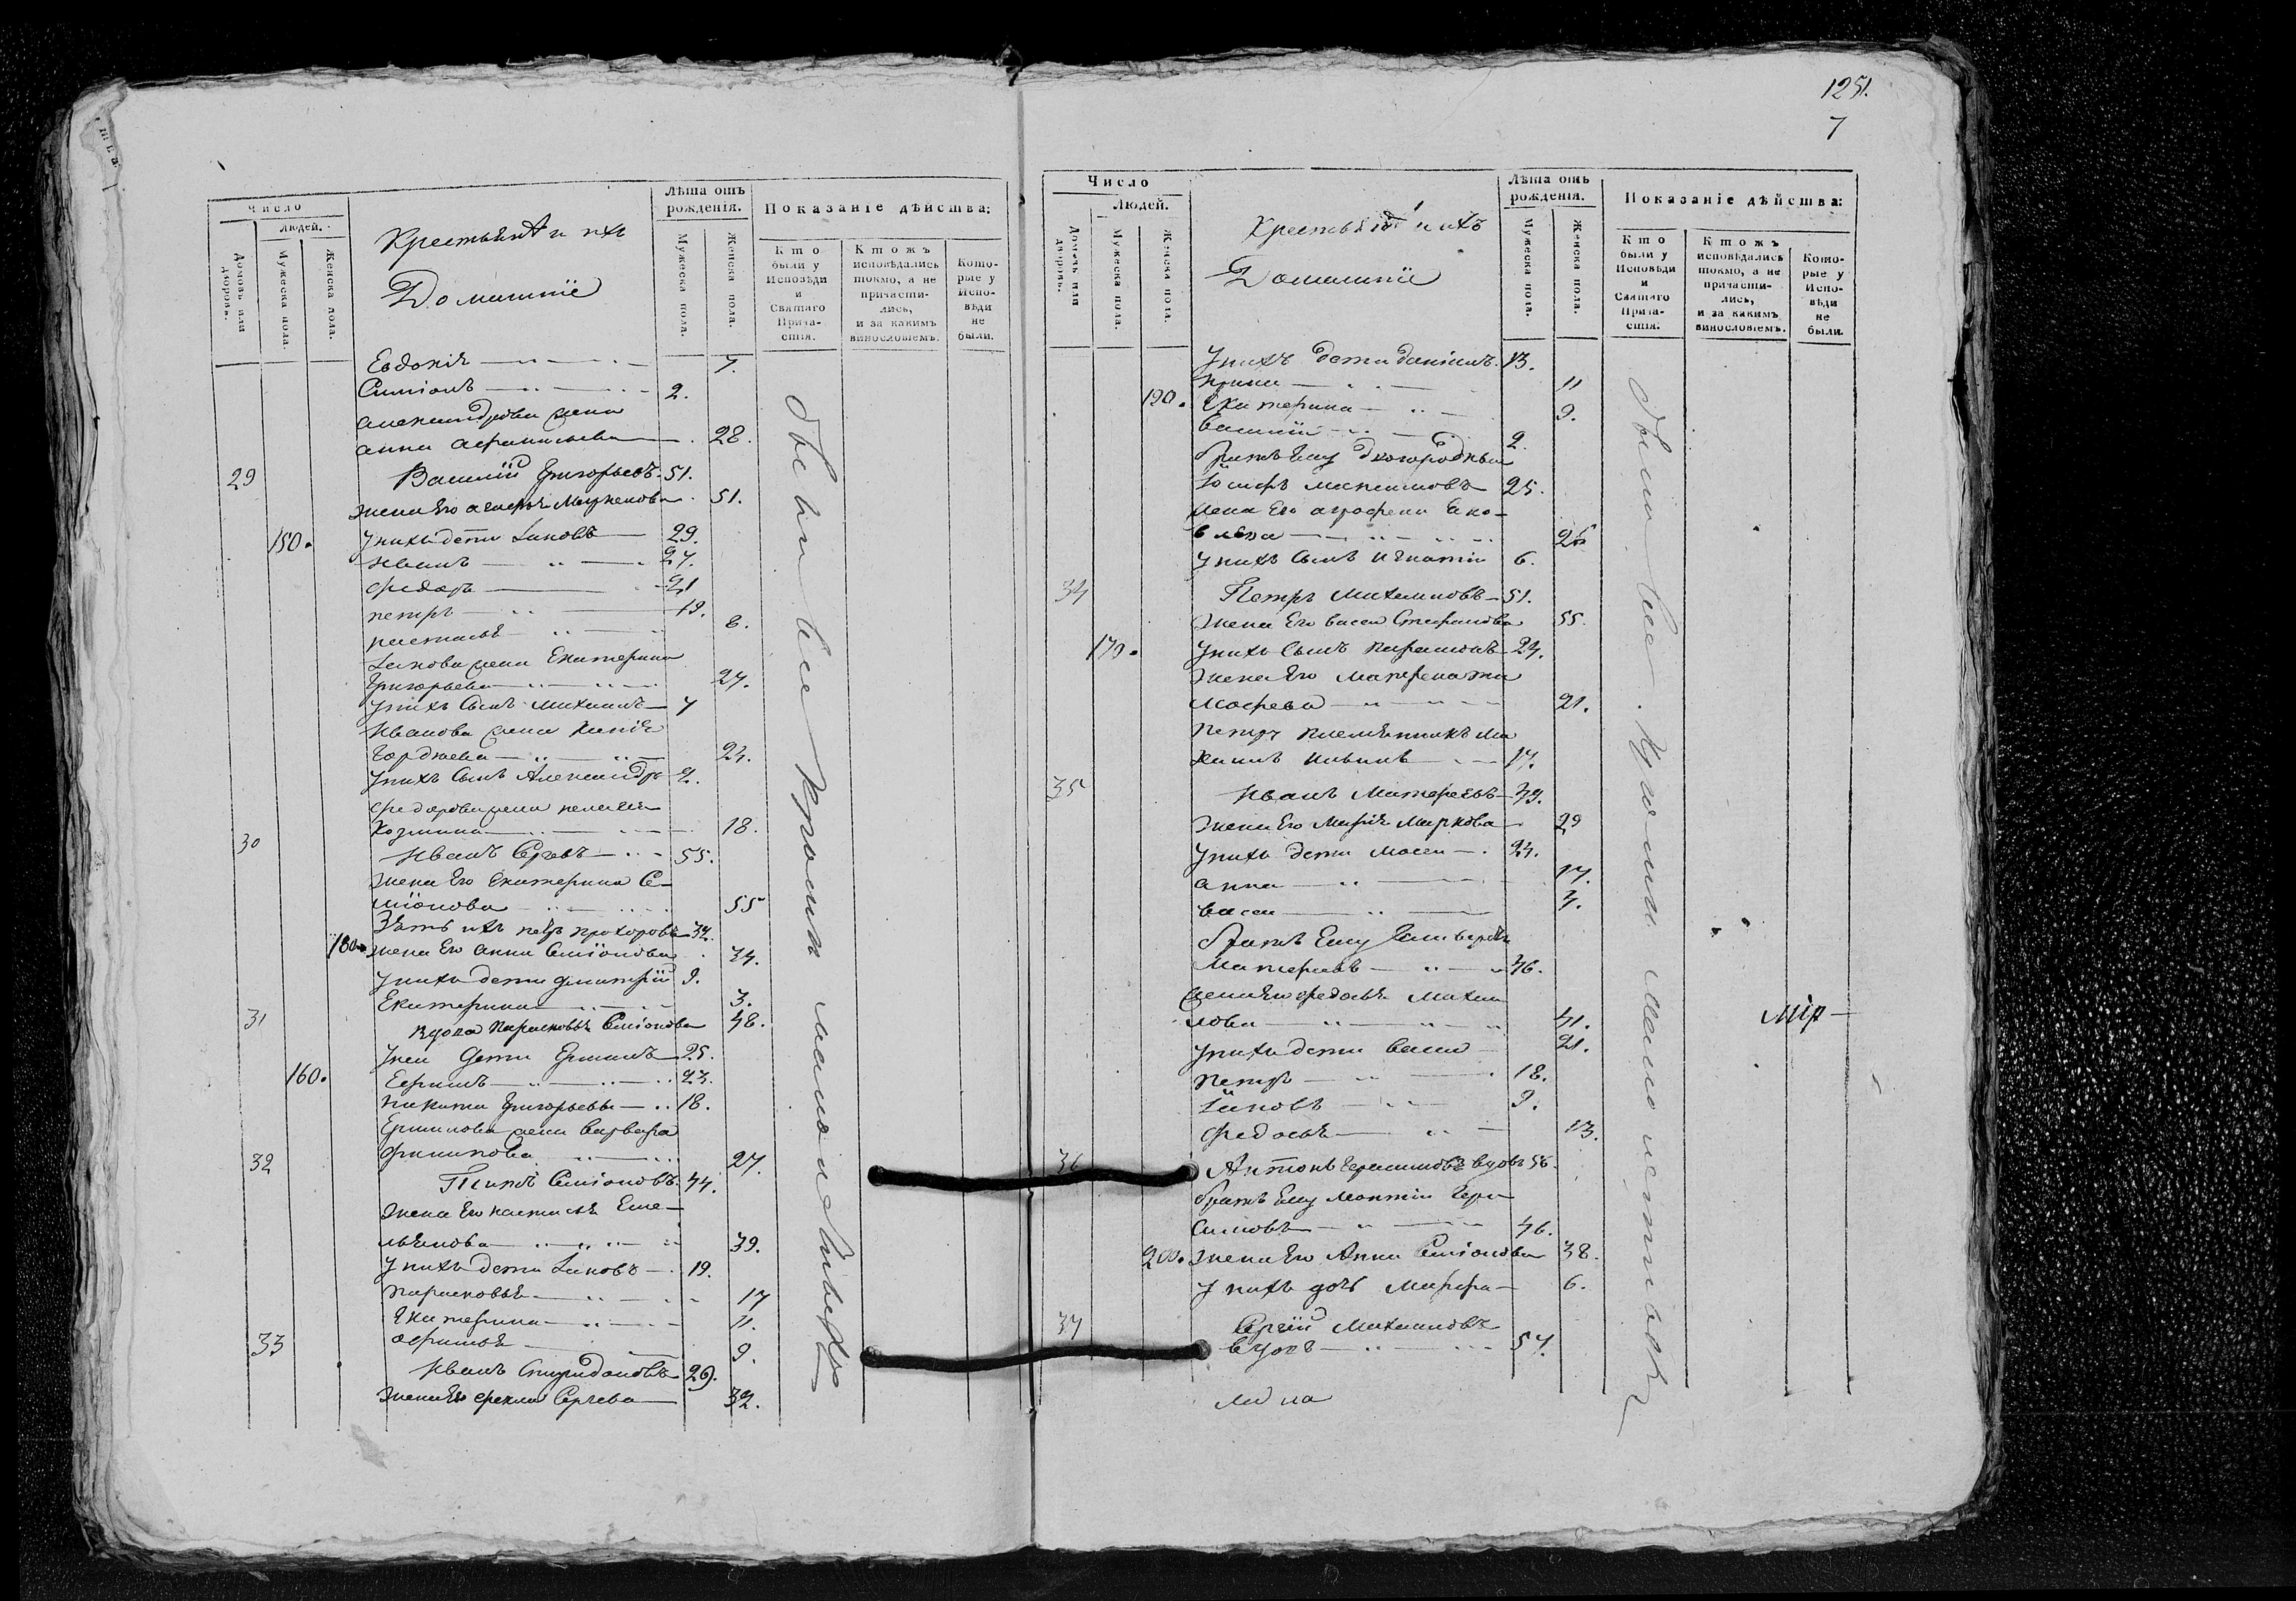 Число
Людей.
Домовъ или дворовъ.
Мужеска пола.
Женска пола.
Крестьянѣ и ихъ
Домашніе
Лѣта отъ рожденія.
Мужеска пола.
Женска пола.
Показаніе дѣйства:
Кто были у Исповѣди и Святаго Причастія.
Ктожъ исповѣдались токмо, а не причастились, и за какимъ винословіемъ.
Которые у Исповѣди не были.
Евдокія 7.
Симіонъ 2.
Александрова жена
анна 28.
29 Василій Григорьевъ 51.
жена Его 51.
150. у нихъ дети Іаковъ 29.
Иванъ 27.
Федоръ 21
петръ 19.
настасья 8.
Іакова жена Екатерина
Григорьева 27.
у нихъ сынъ Михаилъ 7
Иванова жена
Гордѣева 24.
у нихъ сынъ Александръ 2.
Федорова жена пелагея
Козмина 18.
30 Иванъ Сергѣевъ 55.
жена Его Екатерина Се-
міонова 55
Зять ихъ петръ прохоровъ 32.
180. жена Его анна Симіонова 34.
у нихъ дети димитрій 9.
Екатерина 3.
31 вдова Парасковья Симіонова 48.
у неи дети Ермилъ 25.
160. 23.
никита Григорьевы 18.
Ермилова жена варвара
Филипова 27.
32 Симіоновъ 44.
жена Его настасья Еме-
льянова 39.
у нихъ дети Іаковъ 19.
парасковья 17
Екатерина 11.
афимья 9.
33 Иванъ Спиридоновъ 29.
жена Его фекла Сергѣева 32.
были все кроме малолетныхъ
1251.
7
Число
Людей.
Домовъ или дворовъ.
Мужеска пола.
Женска пола.
Крестьянѣ и ихъ
Домашніе
Лѣта отъ рожденія.
Мужеска пола.
Женска пола.
Показаніе дѣйства:
Кто были у Исповѣди и Святаго Причастія.
Ктожъ исповѣдались токмо, а не причастились, и за какимъ винословіемъ.
Которые у Исповѣди не были.
у нихъ дети даніилъ 13.
ирина 11
190. Екатерина 9.
василій 2.
братъ Ему двоюродный
Іосифъ максимовъ 25.
жена Его аграфена Яко-
влѣва 26
у нихъ сынъ игнатій 6.
34 Петръ Михаиловъ 51.
жена Его васса Стефанова 55.
170. у нихъ сынъ парамонъ 24.
жена Его
Мосѣева 21.
петру племянникъ
17.
35 Иванъ Матфеевъ 39.
жена Его Марія Маркова 29
у нихъ дети мосеи 24.
анна 17.
васса 3.
братъ Ему
Матфеевъ 46.
жена Его федосья Михаи
лова 41.
у нихъ дети васса 21.
петръ 18.
Іаковъ 9.
федосья 13.
36 Антонъ Герасимовъ вдовъ 56.
братъ Ему Гера
симовъ 46.
200. жена Его Анна Симіонова 38.
у нихъ дочь Марфа 6.
37 Сергій Михаиловъ
вдовъ 57.
были все кроме малолетныхъ
мір